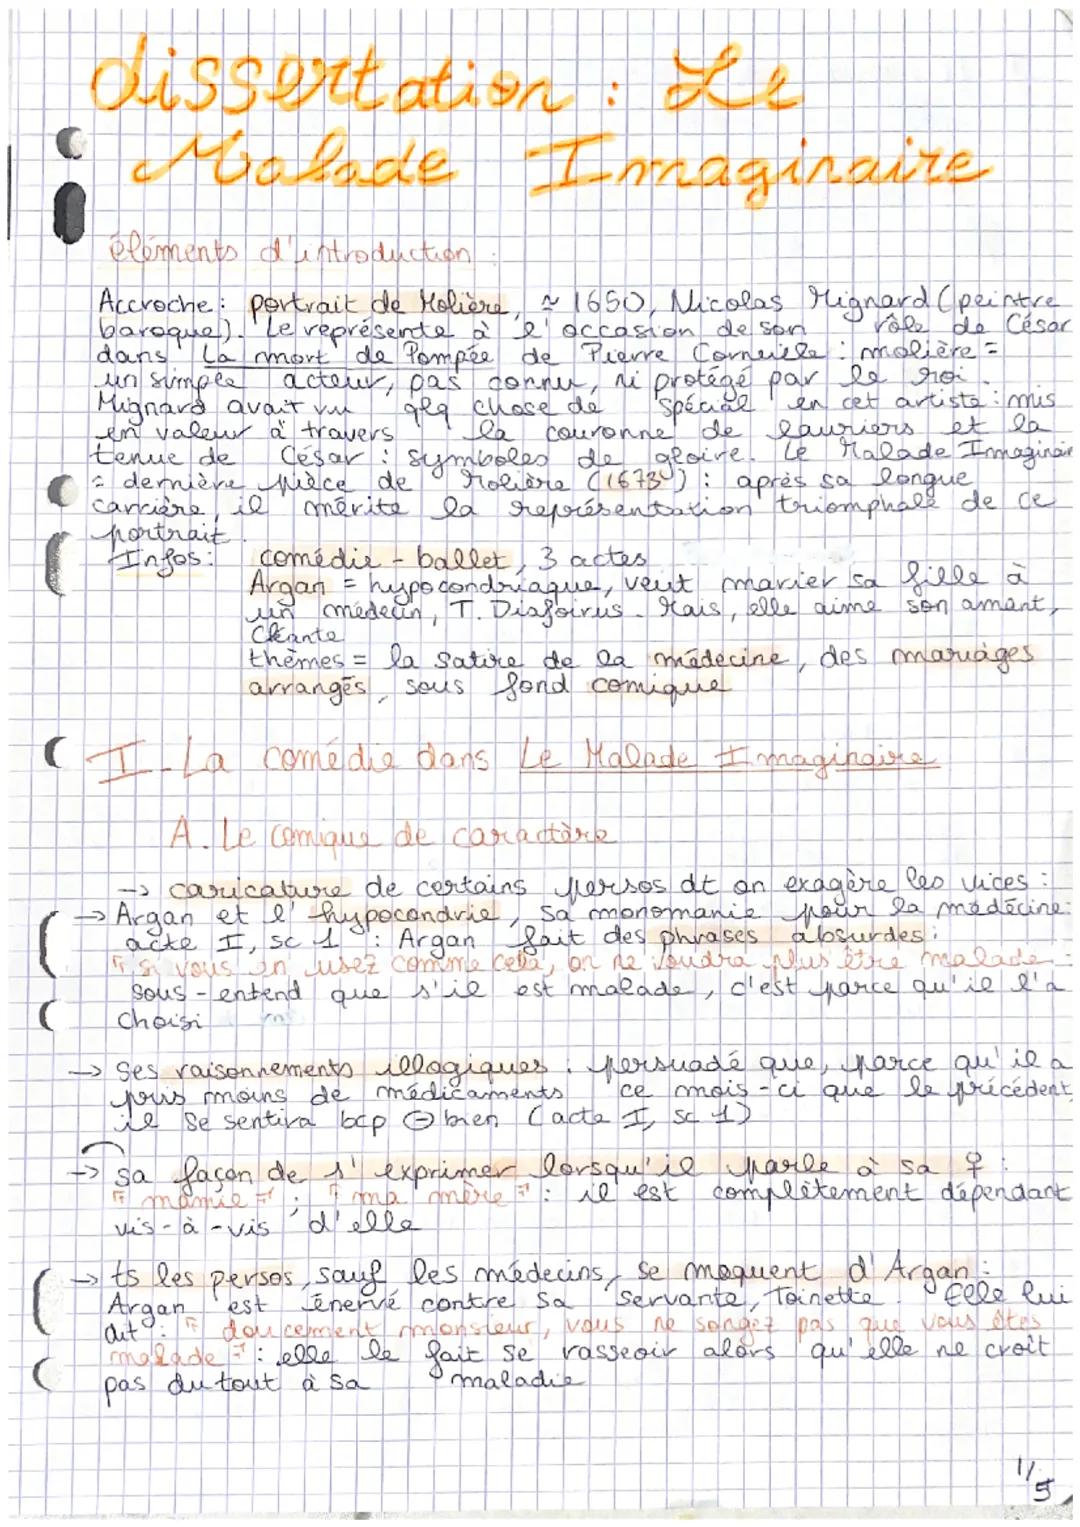 dissertation : Le
Malade Imaginaire
éléments d'introduction :
Accroche : portrait de Molière, ≈ 1650, Nicolas Mignard (peintre
baroque). Le représente à l'occasion de son rôle de César
dans La mort de Pompée de Pierre Corneille : molière =
un simple acteur, pas connu, ni protégé par le roi.
Mignard avait vu qlq chose de spécial en cet artiste : mis
en valeur à travers la couronne de lauriers et la
tenue de César : symboles de gloire. Le Malade Imaginair
= dernière pièce de Molière (1673) : après sa longue
carrière, il mérite la représentation triomphale de ce
portrait.
Infos : comédie-ballet, 3 actes
Argan = hypocondriaque, veut marier sa fille à
un médecin, T. Diafoirus. Mais, elle aime son amant,
Cléante
thèmes = la satire de la médecine, des mariages
arrangés, sous fond comique
I-La comédie dans Le Malade Imaginaire
A. Le comique de caractère
→ caricature de certains persos dt on exagère les vices :
→ Argan et l'hypocondrie, sa monomanie pour la médecine :
acte I, sc 1 : Argan fait des phrases absurdes :
" si vous en usez comme cela, on ne voudra plus être malade " :
sous-entend que s'il est malade, c'est parce qu'il l'a
choisi
→ Ses raisonnements illogiques : persuadé que, parce qu'il a
pris moins de médicaments ce mois-ci que le précédent,
il se sentira bcp ⊖ bien (acte I, sc 1)
→ sa façon de s'exprimer lorsqu'il parle à sa ♀ :
" mamie " ; " ma mère " : il est complètement dépendant
vis-à-vis d'elle
→ ts les persos, sauf les médecins, se moquent d'Argan :
Argan est énervé contre sa servante, Toinette. Elle lui
dit : " doucement monsieur, vous ne songez pas que vous êtes
malade " : elle le fait se rasseoir alors qu'elle ne croît
pas du tout à sa maladie
1/5